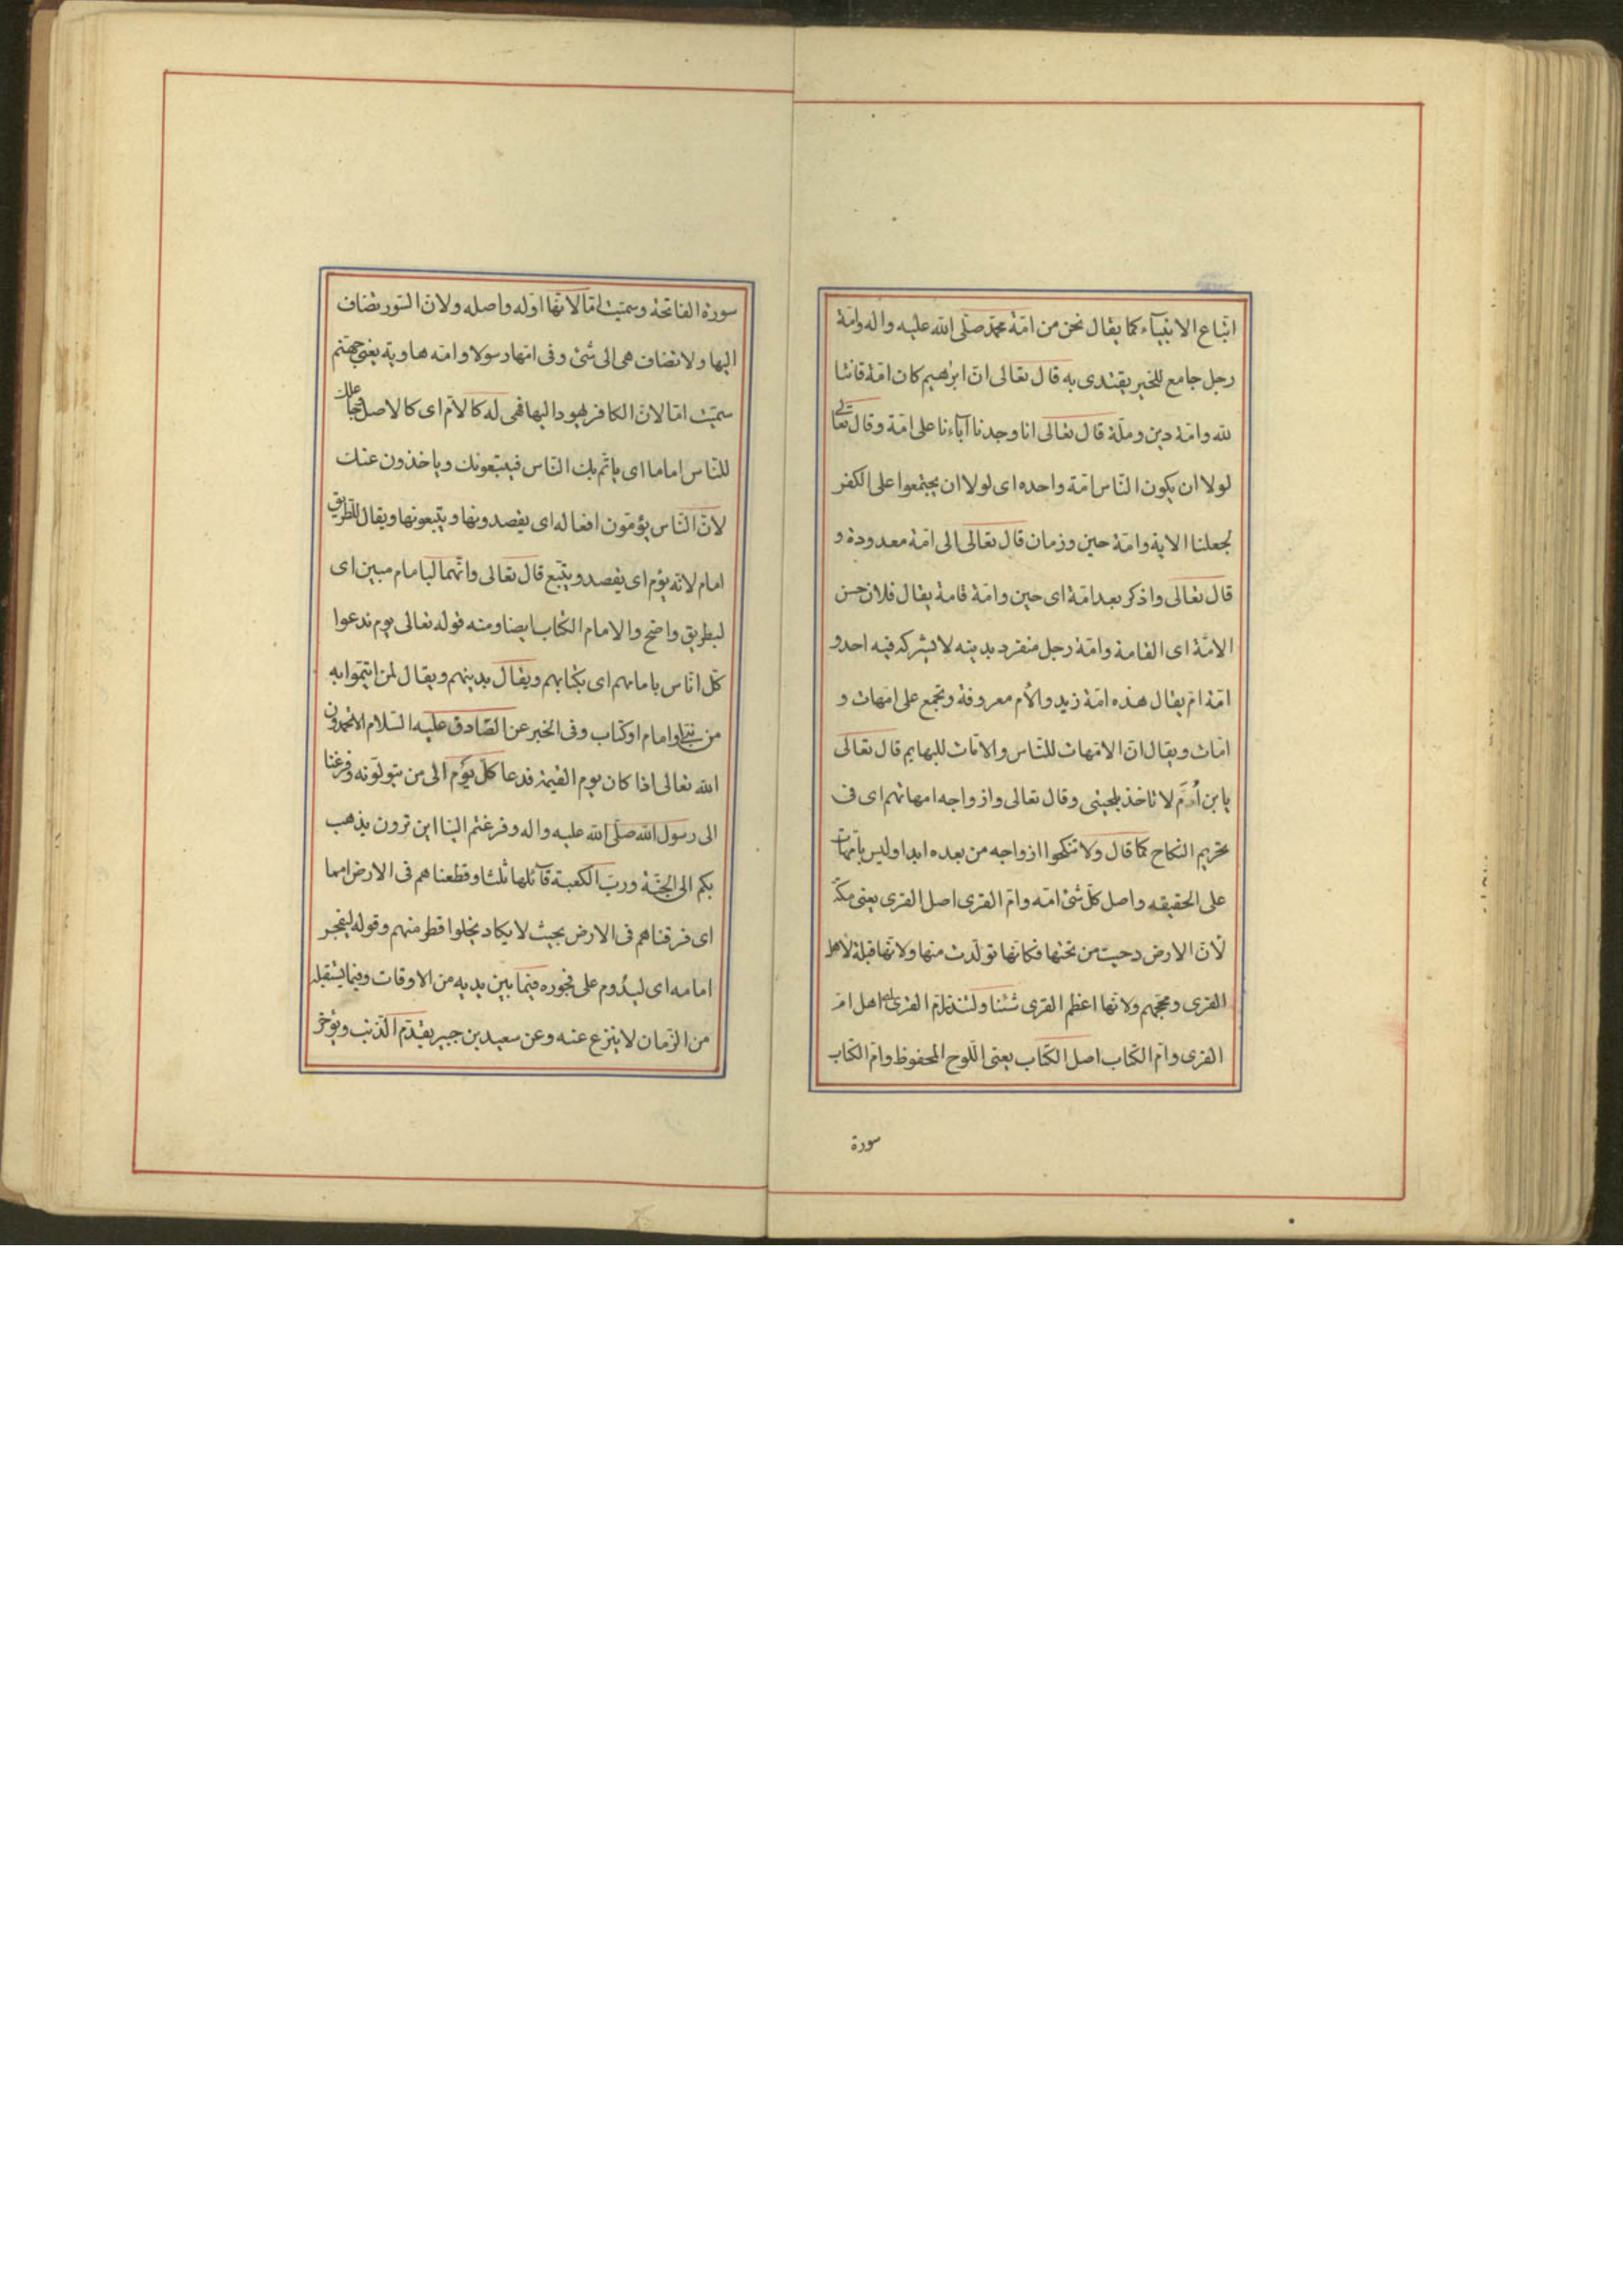 اتباع الانبیآء کما یقال نحن من امّة محمّد صلّی الله علیه واله وامّة
رجل جامع للخیر یقتدی به قال تعالی انّ ابرهیم کان امّة قانتا
لله وامّة دین وملّة قال تعالی انا وجدنا آباءنا علی امّة وقال تعالی
لولا ان یکون النّاس امّة واحده ای لولا ان یجتمعوا علی الکفر
لجعلنا الایة وامّة حین وزمان قال تعالی الی امّة معدودة و
قال تعالی واذکر بعد امّة ای حین وامّة قامة یقال فلان حسن
الامّة ای القامة وامّة رجل منفرد بدینه لا یشرکه فیه احد و
امّة امّ یقال هذه امّة زید والاُم معروفة وتجمع علی امّهات و
امّات ویقال انّ الامّهات للنّاس والامّات للبهایم قال تعالی
یابن اُمَّ لا تاخذ بلحیتی وقال تعالی وازواجه امهاتهم ای فی
تحریم النکاح کما قال ولا تنکحوا ازواجه من بعده ابدا ولیس بامّهات
علی الحقیقه واصل کلّ شئ امّه وامّ القری اصل القری یعنی مکّة
لانّ الارض دحیت من تحتها فکانّها تولّدت منها ولانّها قبلة لاهل
القری ومحجّهم ولانّها اعظم القری شئنا ولتنذر امّ القری ای اهل امّ
القری وامّ الکتاب اصل الکتاب یعنی اللّوح المحفوظ وامّ الکتاب
سورة
سورة الفاتحة وسمّیت امّا لانّها اوّله واصله ولانّ السّور تضاف
الیها ولا تضاف هی الی شئ وفی امّها رسولا وامّه هاویة یعنی جهنّم
سمّیت امّا لانّ الکافر یهود الیها فهی له کالاُمّ ای کالاصل جاعلک
للنّاس اماما ای یاتمّ بک النّاس فیتبعونک ویاخذون عنک
لانّ النّاس یؤمّون افعاله ای یقصدونها ویتّبعونها ویقال للطّریق
امام لانّه یؤم ای یقصد ویتّبع قال تعالی وانّهما لبامام مبین ای
لبطریق واضح والامام الکتاب ایضا ومنه قوله تعالی یوم ندعوا
کلّ اناس بامامهم ای بکتابهم ویقال بدینهم ویقال لمن ایتمّوا به
من نبیّ او امام او کتاب وفی الخبر عن الصّادق علیه السّلام الا تحمدون
الله تعالی اذا کان یوم القیمة فدعا کلّ یوم الی من یتولّونه وفزعنا
الی رسول الله صلّی الله علیه واله وفزعتم الینا این ترون یذهب
بکم الی الجنّة وربّ الکعبة قآئلها ثلثا وقطعناهم فی الارض امما
ای فرقناهم فی الارض بحیث لا یکاد یخلوا قطر منهم وقوله لیفجر
امامه ای لیدُوم علی فجوره فیما بین یدیه من الاوقات وفیما یستقبله
من الزّمان لا ینزع عنه وعن سعید بن جبیر یقدّم الذّنب ویؤخّر